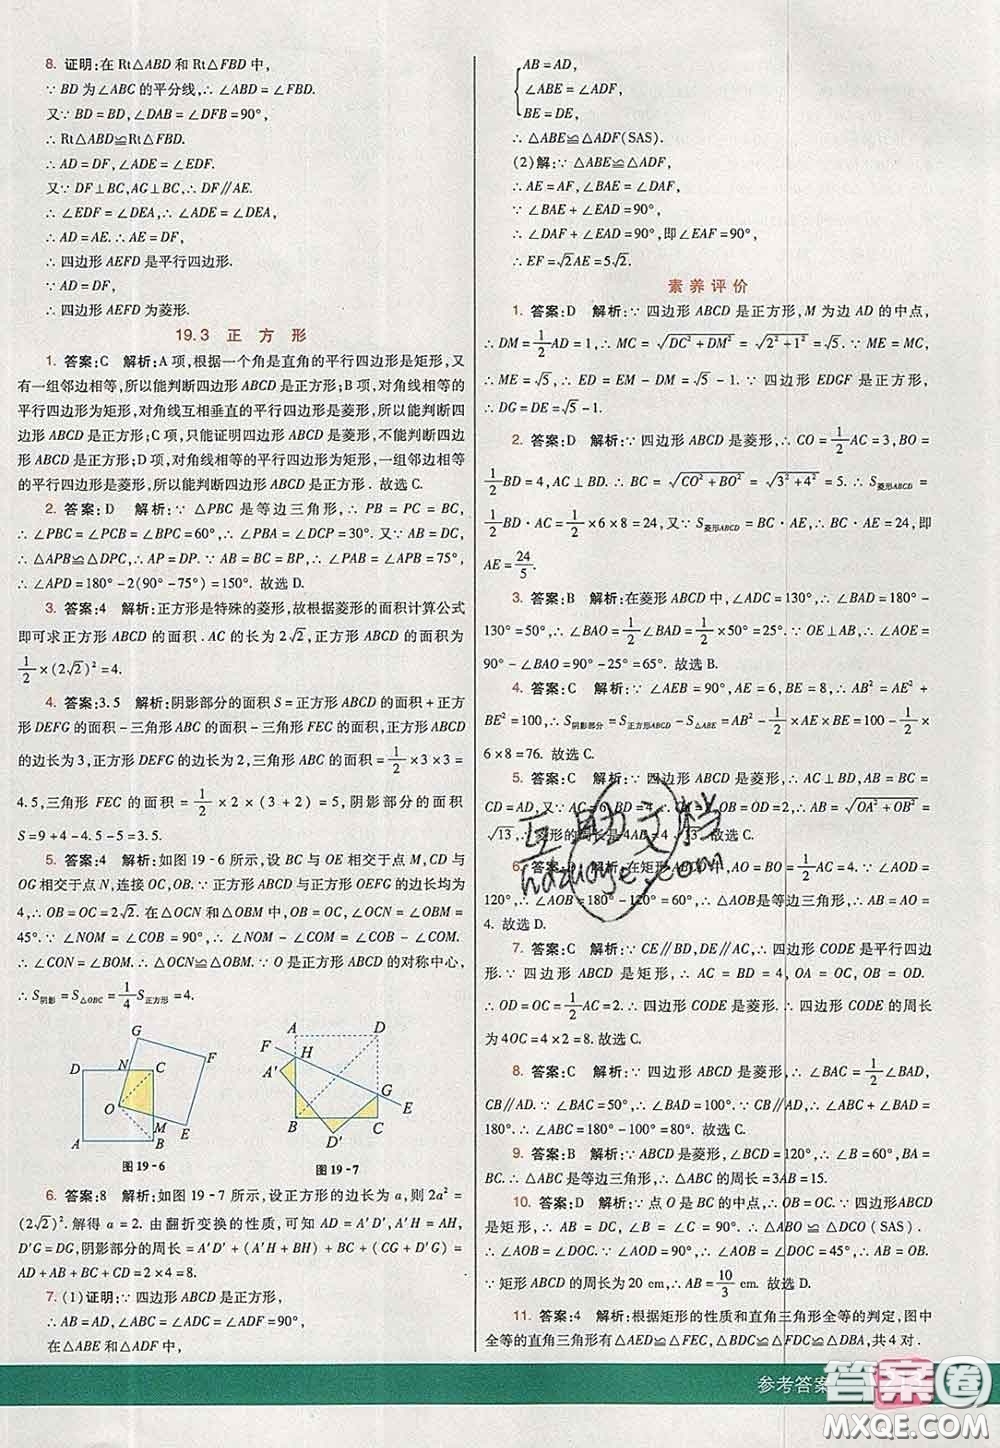 8. 证明:在 Rt△ABD 和 Rt△FBD 中,
∵ BD 为∠ABC 的平分线,∴ ∠ABD = ∠FBD.
又∵ BD = BD,∠DAB = ∠DFB = 90°,
∴ Rt△ABD≌Rt△FBD.
∴ AD = DF,∠ADE = ∠EDF.
又∵ DF⊥BC,AG⊥BC,∴ DF∥AE.
∴ ∠EDF = ∠DEA,∴ ∠ADE = ∠DEA,
∴ AD = AE.∴ AE = DF,
∴ 四边形 AEFD 是平行四边形.
∵ AD = DF,
∴ 四边形 AEFD 为菱形.
19.3 正 方 形
1. 答案:C 解析:A 项,根据一个角是直角的平行四边形是矩形,又
有一组邻边相等,所以能判断四边形 ABCD 是正方形;B 项,对角线相等的
平行四边形为矩形,对角线互相垂直的平行四边形是菱形,所以能判断四
边形 ABCD 是正方形;C 项,只能证明四边形 ABCD 是菱形,不能判断四边
形 ABCD 是正方形;D 项,对角线相等的平行四边形为矩形,一组邻边相等
的平行四边形是菱形,所以能判断四边形 ABCD 是正方形. 故选 C.
2. 答案:D 解析:∵ △PBC 是等边三角形,∴ PB = PC = BC,
∴ ∠PBC = ∠PCB = ∠BPC = 60°,∴ ∠PBA = ∠DCP = 30°. 又∵ AB = DC,
∴ △APB≌△DPC,∴ AP = DP. ∵ AB = BC = BP,∴ ∠BAP = ∠BPA = 75°,
∴ ∠APD = 180° - 2(90° - 75°) = 150°. 故选 D.
3. 答案:4 解析:正方形是特殊的菱形,故根据菱形的面积计算公式
即可求正方形 ABCD 的面积. AC 的长为 2√2,∴ 正方形 ABCD 的面积为
1/2 × (2√2)² = 4.
4. 答案:3.5 解析:阴影部分的面积 S = 正方形 ABCD 的面积 + 正方
形 DEFG 的面积 - 三角形 ABC 的面积 - 三角形 FEC 的面积,正方形 ABCD
的边长为 3,正方形 DEFG 的边长为 2,三角形 ABC 的面积 = 1/2 × 3 × 3 =
4.5,三角形 FEC 的面积 = 1/2 × 2 × (3 + 2) = 5,阴影部分的面积
S = 9 + 4 - 4.5 - 5 = 3.5.
5. 答案:4 解析:如图 19 - 6 所示,设 BC 与 OE 相交于点 M,CD 与
OG 相交于点 N,连接 OC,OB. ∵ 正方形 ABCD 和正方形 OEFG 的边长均为
4,∴ OB = OC = 2√2. 在△OCN 和△OBM 中,OB = OC,∠OCN = ∠OBM =
45°. ∵ ∠NOM = ∠COB = 90°,∴ ∠NOM - ∠COM = ∠COB - ∠COM,
∴ ∠CON = ∠BOM,∴ △OCN≌△OBM. ∵ O 是正方形 ABCD 的对称中心,
∴ S阴影 = S△OBC = 1/4 S正方形 = 4.
G
F
D
N
C
O
M
E
A
B
图 19 - 6
A
D
F
H
A'
G
E
B
C
D'
图 19 - 7
6. 答案:8 解析:如图 19 - 7 所示,设正方形的边长为 a,则 2a² =
(2√2)². 解得 a = 2. 由翻折变换的性质,可知 AD = A'D',A'H = AH,
D'G = DG,阴影部分的周长 = A'D' + (A'H + BH) + BC + (CG + D'G) =
AD + AB + BC + CD = 2 × 4 = 8.
7. (1)证明:∵ 四边形 ABCD 是正方形,
∴ AB = AD,∠ABC = ∠D = 90°,∴ ∠ABE = ∠D = 90°,
在△ABE 和△ADF 中,
AB = AD,
∠ABE = ∠ADF,
BE = DE,
∴ △ABE≌△ADF(SAS).
(2)解:∵ △ABE≌△ADF,
∴ AE = AF,∠BAE = ∠DAF,
∵ ∠BAE + ∠EAD = 90°,
∴ ∠DAF + ∠EAD = 90°,即∠EAF = 90°,
∴ EF = √2AE = 5√2.
素 养 评 价
1. 答案:D 解析:∵ 四边形 ABCD 是正方形,M 为边 AD 的中点,
∴ DM = 1/2 AD = 1/2 DC = 1,∴ MC = √(DC² + DM²) = √(2² + 1²) = √5. ∵ ME = MC,
∴ ME = √5,∴ ED = EM - DM = √5 - 1. ∵ 四边形 EDGF 是正方形,
∴ DG = DE = √5 - 1.
2. 答案:D 解析:∵ 四边形 ABCD 是菱形,∴ CO = 1/2 AC = 3,BO =
1/2 BD = 4,AC⊥BD,∴ BC = √(CO² + BO²) = √(3² + 4²) = 5. ∴ S菱形ABCD =
1/2 BD · AC = 1/2 × 6 × 8 = 24,又∵ S菱形ABCD = BC · AE,∴ BC · AE = 24,即
AE = 24/5.
3. 答案:B 解析:在菱形 ABCD 中,∠ADC = 130°,∴ ∠BAD = 180° -
130° = 50°,∴ ∠BAO = 1/2 ∠BAD = 1/2 × 50° = 25°. ∵ OE⊥AB,∴ ∠AOE =
90° - ∠BAO = 90° - 25° = 65°. 故选 B.
4. 答案:C 解析:∵ ∠AEB = 90°,AE = 6,BE = 8,∴ AB² = AE² +
BE² = 100,∴ S阴影部分 = S正方形ABCD - S△ABE = AB² - 1/2 × AE × BE = 100 - 1/2 ×
6 × 8 = 76. 故选 C.
5. 答案:C 解析:∵ 四边形 ABCD 是菱形,∴ AC⊥BD,AB = BC =
CD = DA,又∵ AC = 6,BD = 4,∴ AO = OC = 3,OB = OD = 2,∴ AB = √(OA² + OB²) =
√13,∴ 菱形的周长是 4AB = 4√13. 故选 C.
6. 答案:D 解析:在矩形 ABCD 中,AO = BO = 1/2 AC = 4. ∵ ∠AOD =
120°,∴ ∠AOB = 180° - 120° = 60°,∴ △AOB 是等边三角形,∴ AB = AO =
4. 故选 D.
7. 答案:C 解析:∵ CE∥BD,DE∥AC,∴ 四边形 CODE 是平行四边
形. ∵ 四边形 ABCD 是矩形,∴ AC = BD = 4,OA = OC,OB = OD.
∴ OD = OC = 1/2 AC = 2. ∴ 四边形 CODE 是菱形,∴ 四边形 CODE 的周长
为 4OC = 4 × 2 = 8. 故选 C.
8. 答案:C 解析:∵ 四边形 ABCD 是菱形,∴ ∠BAC = 1/2 ∠BAD,
CB∥AD. ∵ ∠BAC = 50°,∴ ∠BAD = 100°. ∵ CB∥AD,∴ ∠ABC + ∠BAD =
180°. ∴ ∠ABC = 180° - 100° = 80°. 故选 C.
9. 答案:B 解析:∵ ABCD 是菱形,∠BCD = 120°,∴ ∠B = 60°,
BA = BC,∴ △ABC 是等边三角形,∴ △ABC 的周长 = 3AB = 15.
10. 答案:D 解析:∵ 点 O 是 BC 的中点,∴ OB = OC. ∵ 四边形ABCD
是矩形,∴ AB = DC,∠B = ∠C = 90°. ∴ △ABO≌△DCO(SAS).
∴ ∠AOB = ∠DOC. ∵ ∠AOD = 90°,∴ ∠AOB = ∠DOC = 45°,∴ AB = OB.
∵ 矩形 ABCD 的周长为 20 cm,∴ AB = 10/3 cm. 故选 D.
11. 答案:4 解析:根据矩形的性质和直角三角形全等的判定,图中
全等的直角三角形有△AED≌△FEC,△BDC≌△FDC≌△DBA,共 4 对.
互助文档
hdzuoye.com
参考答案
答案圈
MXQE.COM